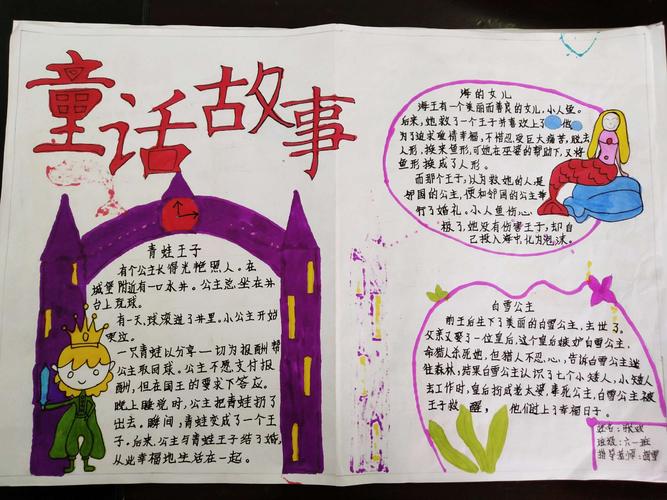 童话故事
青蛙王子
有个公主长得光艳照人。在
城堡附近有一口水井。公主总坐在井
台上玩球。
有一天,球滚进了井里。小公主开始
哭泣。
一只青蛙以分享一切为报酬帮
公主取回球。公主不愿支付报
酬,但在国王的要求下答应。
晚上睡觉时,公主把青蛙扔了
出去。瞬间,青蛙变成了一个王
子。后来,公主与青蛙王子结了婚,
从此幸福地生活在一起。
海的女儿
海王有一个美丽而善良的女儿,小人鱼。
后来,她救了一个王子并喜欢上了他
为了追求爱情幸福,不惜忍受巨大痛苦,脱去
人形,换来鱼形,可她在巫婆的帮助下,又将
鱼形换成了人形。
而那个王子,以为救她的人是
邻国的公主,便和邻国的公主举
行了婚礼。小人鱼伤心
极了,她没有伤害王子,却自
己投入海中,化为泡沫。
白雪公主
王后生下了美丽的白雪公主,去世了。
父亲又娶了一位皇后,这个皇后嫉妒白雪公主,
命猎人杀死她,但猎人不忍心,告诉白雪公主逃
往森林,结果白雪公主认识了七个小矮人,小矮人
去工作时,皇后扮成老太婆,毒死公主,白雪公主被
王子救醒,他们过上了幸福日子。
姓名:
班级:六一班
指导老师: